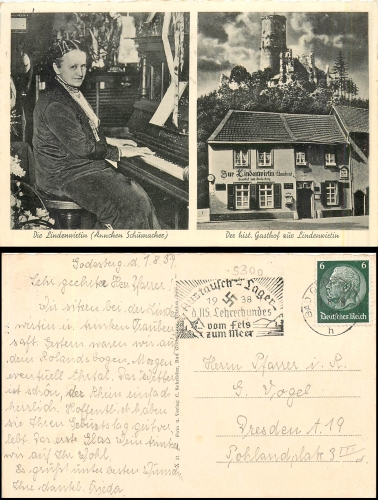 Die Lindenwirtin (Ännchen Schumacher)
Der hist. Gasthof zur Lindenwirtin
Zur Lindenwirtin
Godesberg d. 1.8.39.
Sehr geehrter Herr Pfarrer!
Wir sitzen bei der Linden
wirtin u. trinken Trauben
saft. Gestern waren wir auf
dem Rolandsbogen. Morgen
eventuell Ahrtal. Das Wetter
ist schön, der Rhein einfach
herrlich. Hoffentl. haben
sie Ihren Geburtstag gut ver
lebt. Das erste Glas Wein trinken
wir auf Ihr Wohl.
Es grüßt
Ihre dankb. Frieda.
Austausch-Lager
19 38
d. NS. Lehrerbundes
vom Fels
zum Meer
6 6
Deutsches Reich
h
Herrn Pfarrer i. R.
G. Vogel
Dresden A. 19
Pohlandplatz 3 III